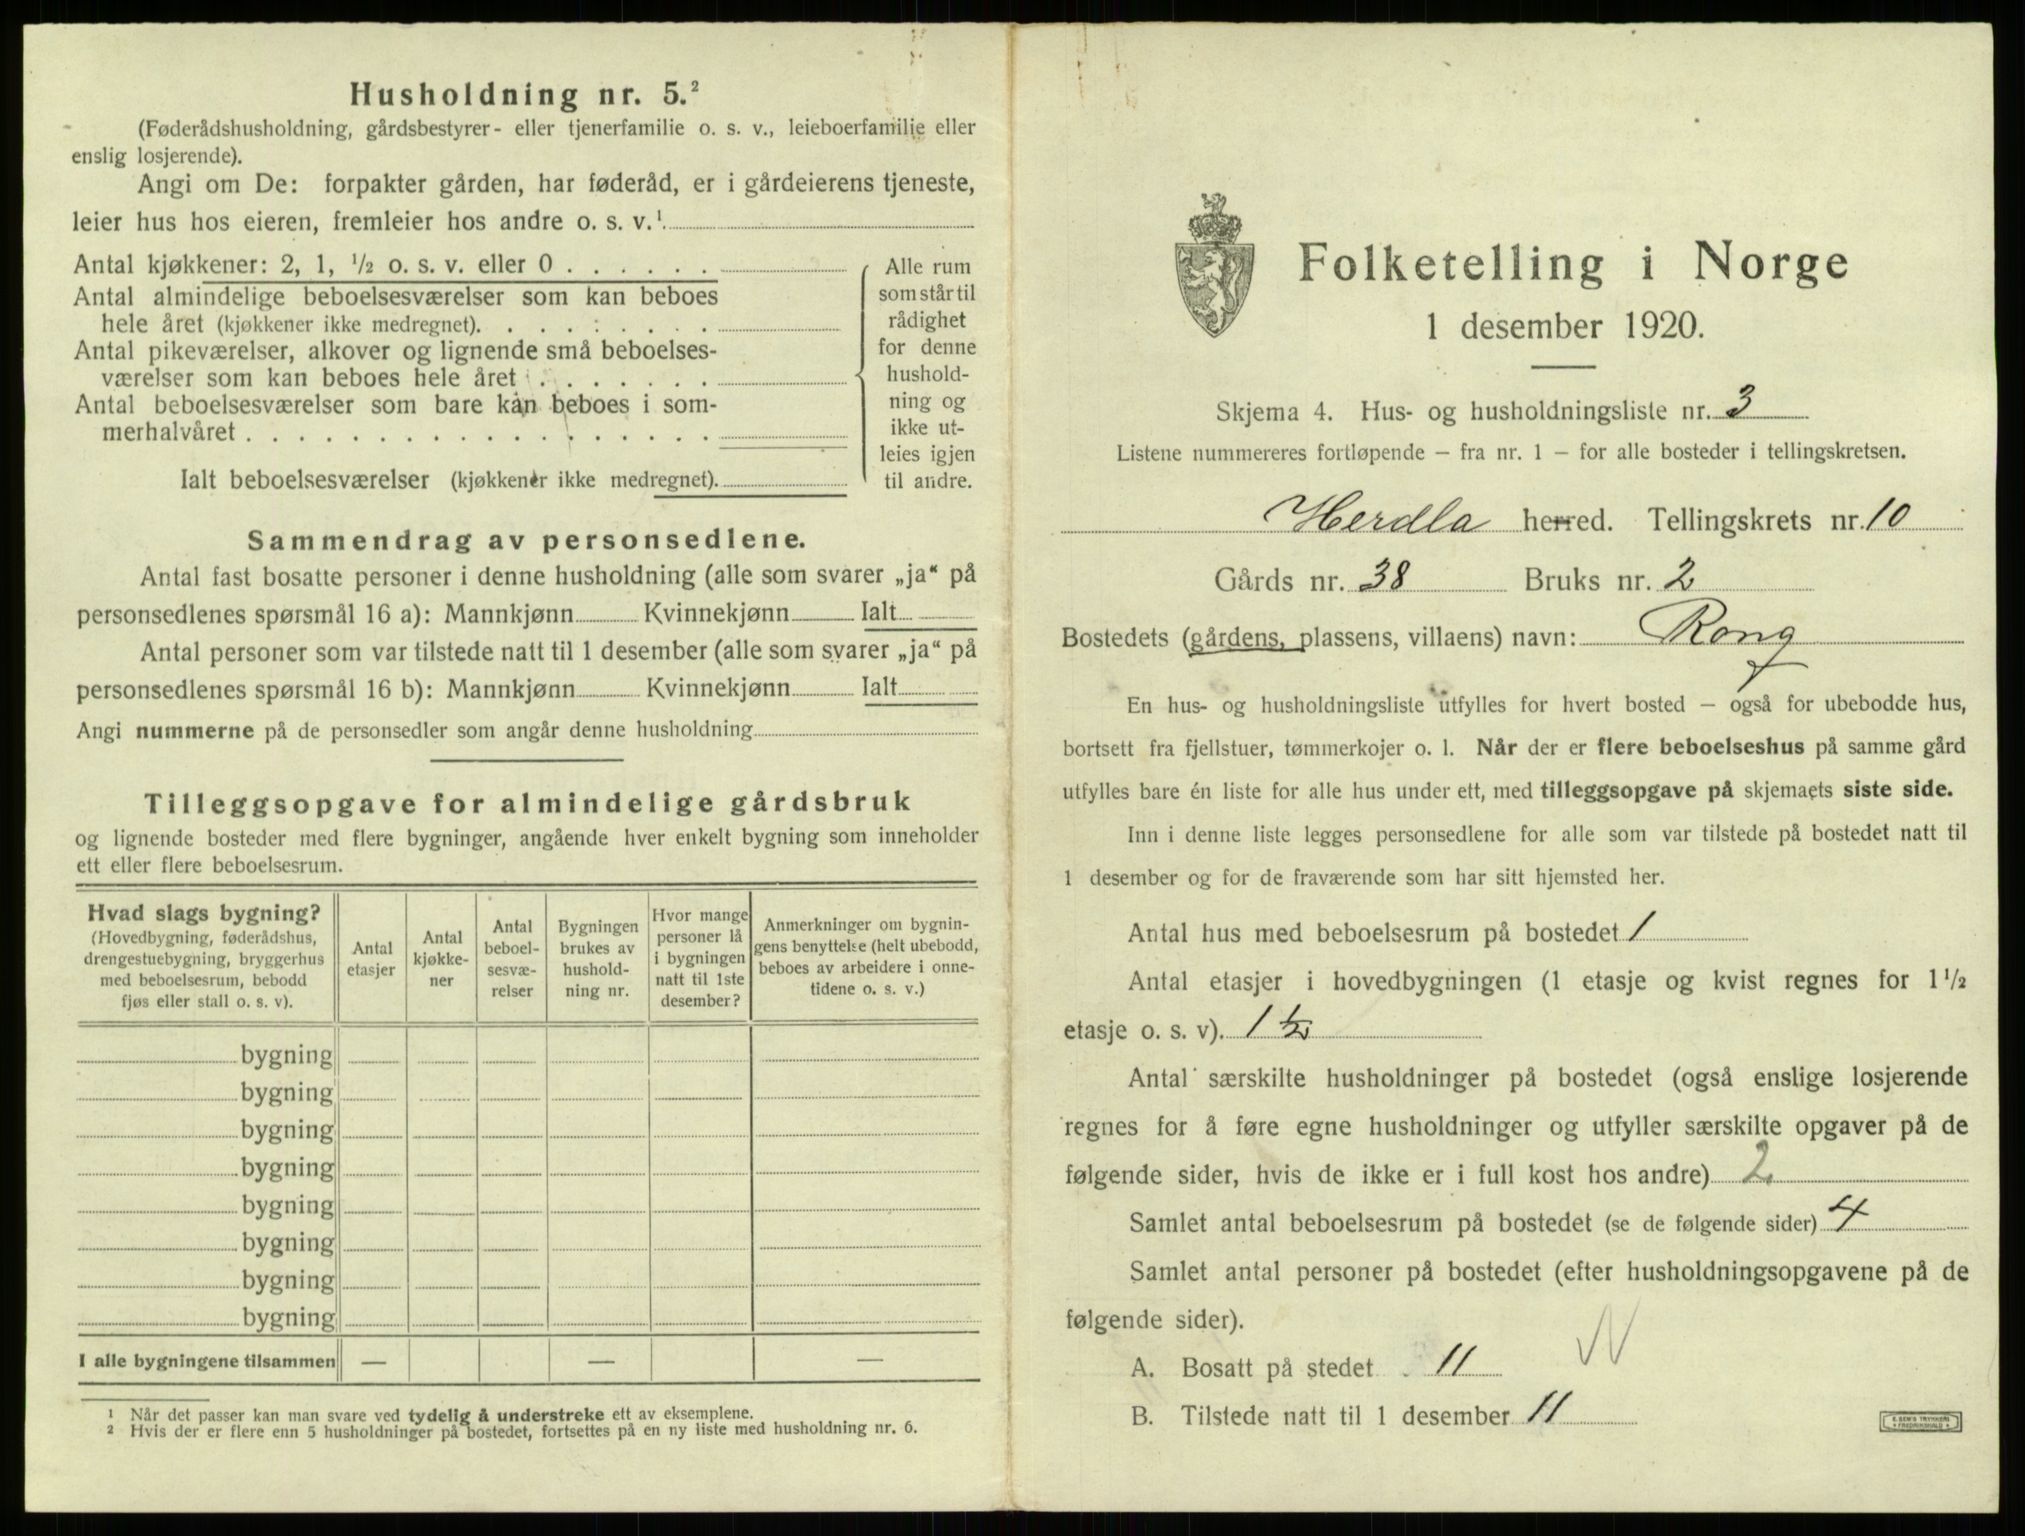 Husholdning nr. 5.²
(Føderådshusholdning, gårdsbestyrer- eller tjenerfamilie o. s. v., leieboerfamilie eller
enslig losjerende).
Angi om De: forpakter gården, har føderåd, er i gårdeierens tjeneste,
leier hus hos eieren, fremleier hos andre o. s. v.¹
Antal kjøkkener: 2, 1, ½ o. s. v. eller 0 . . . . . .
Antal almindelige beboelsesværelser som kan beboes
hele året (kjøkkener ikke medregnet). . . . . . . . .
Antal pikeværelser, alkover og lignende små beboelses-
værelser som kan beboes hele året . . . . . . .
Antal beboelsesværelser som bare kan beboes i som-
merhalvåret . . . . . . . . . . . . . . . . . .
Ialt beboelsesværelser (kjøkkener ikke medregnet).
Alle rum
som står til
rådighet
for denne
hushold-
ning og
ikke ut-
leies igjen
til andre.
Sammendrag av personsedlene.
Antal fast bosatte personer i denne husholdning (alle som svarer „ja“ på
personsedlenes spørsmål 16 a): Mannkjønn Kvinnekjønn Ialt
Antal personer som var tilstede natt til 1 desember (alle som svarer „ja“ på
personsedlenes spørsmål 16 b): Mannkjønn Kvinnekjønn Ialt
Angi nummerne på de personsedler som angår denne husholdning
Tilleggsopgave for almindelige gårdsbruk
og lignende bosteder med flere bygninger, angående hver enkelt bygning som inneholder
ett eller flere beboelsesrum.
Hvad slags bygning?
(Hovedbygning, føderådshus,
drengestuebygning, bryggerhus
med beboelsesrum, bebodd
fjøs eller stall o. s. v).
Antal
etasjer
Antal
kjøkke-
ner
Antal
beboel-
sesvæ-
relser
Bygningen
brukes av
hushold-
ning nr.
Hvor mange
personer lå
i bygningen
natt til 1ste
desember?
Anmerkninger om bygnin-
gens benyttelse (helt ubebodd,
beboes av arbeidere i onne-
tidene o. s. v.)
bygning
bygning
bygning
bygning
bygning
bygning
bygning
bygning
I alle bygningene tilsammen — — —
¹ Når det passer kan man svare ved tydelig å understreke ett av eksemplene.
² Hvis der er flere enn 5 husholdninger på bostedet, fortsettes på en ny liste med husholdning nr. 6.
Folketelling i Norge
1 desember 1920.
Skjema 4. Hus- og husholdningsliste nr. 3
Listene nummereres fortløpende — fra nr. 1 — for alle bosteder i tellingskretsen.
Herdla herred. Tellingskrets nr. 10
Gårds nr. 38 Bruks nr. 2
Bostedets (gårdens, plassens, villaens) navn: Rong
En hus- og husholdningsliste utfylles for hvert bosted — også for ubebodde hus,
bortsett fra fjellstuer, tømmerkojer o. l. Når der er flere beboelseshus på samme gård
utfylles bare én liste for alle hus under ett, med tilleggsopgave på skjemaets siste side.
Inn i denne liste legges personsedlene for alle som var tilstede på bostedet natt til
1 desember og for de fraværende som har sitt hjemsted her.
Antal hus med beboelsesrum på bostedet 1
Antal etasjer i hovedbygningen (1 etasje og kvist regnes for 1½
etasje o. s. v). 1½
Antal særskilte husholdninger på bostedet (også enslige losjerende
regnes for å føre egne husholdninger og utfyller særskilte opgaver på de
følgende sider, hvis de ikke er i full kost hos andre) 2
Samlet antal beboelsesrum på bostedet (se de følgende sider) 4
Samlet antal personer på bostedet (efter husholdningsopgavene på de
følgende sider).
A. Bosatt på stedet 11
B. Tilstede natt til 1 desember 11
E. SEM'S TRYKKERI
FREDRIKSHALD